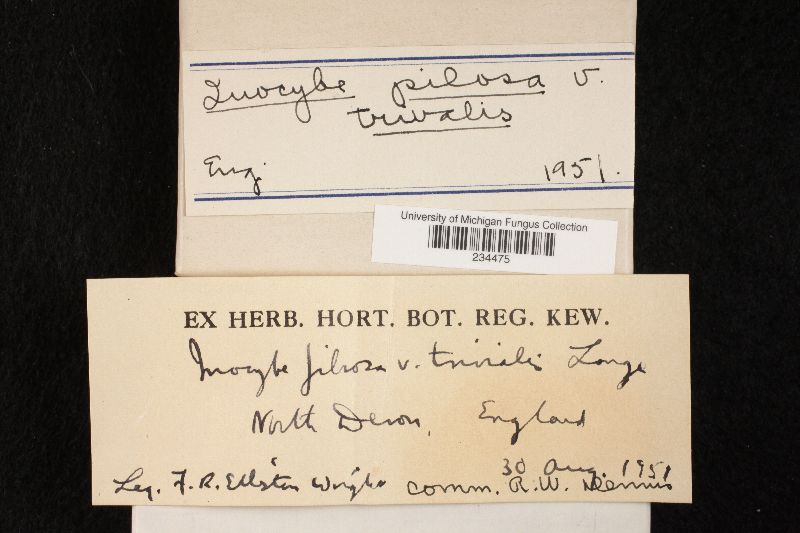 Inocybe pilosa v.
trivalis
Eng. 1951.
University of Michigan Fungus Collection
234475
EX HERB. HORT. BOT. REG. KEW.
Inocybe pilosa v. trivialis Lange
North Devon, England
30 Aug. 1951
Leg. F. R. Elliston Wright comm. R.W. Dennis